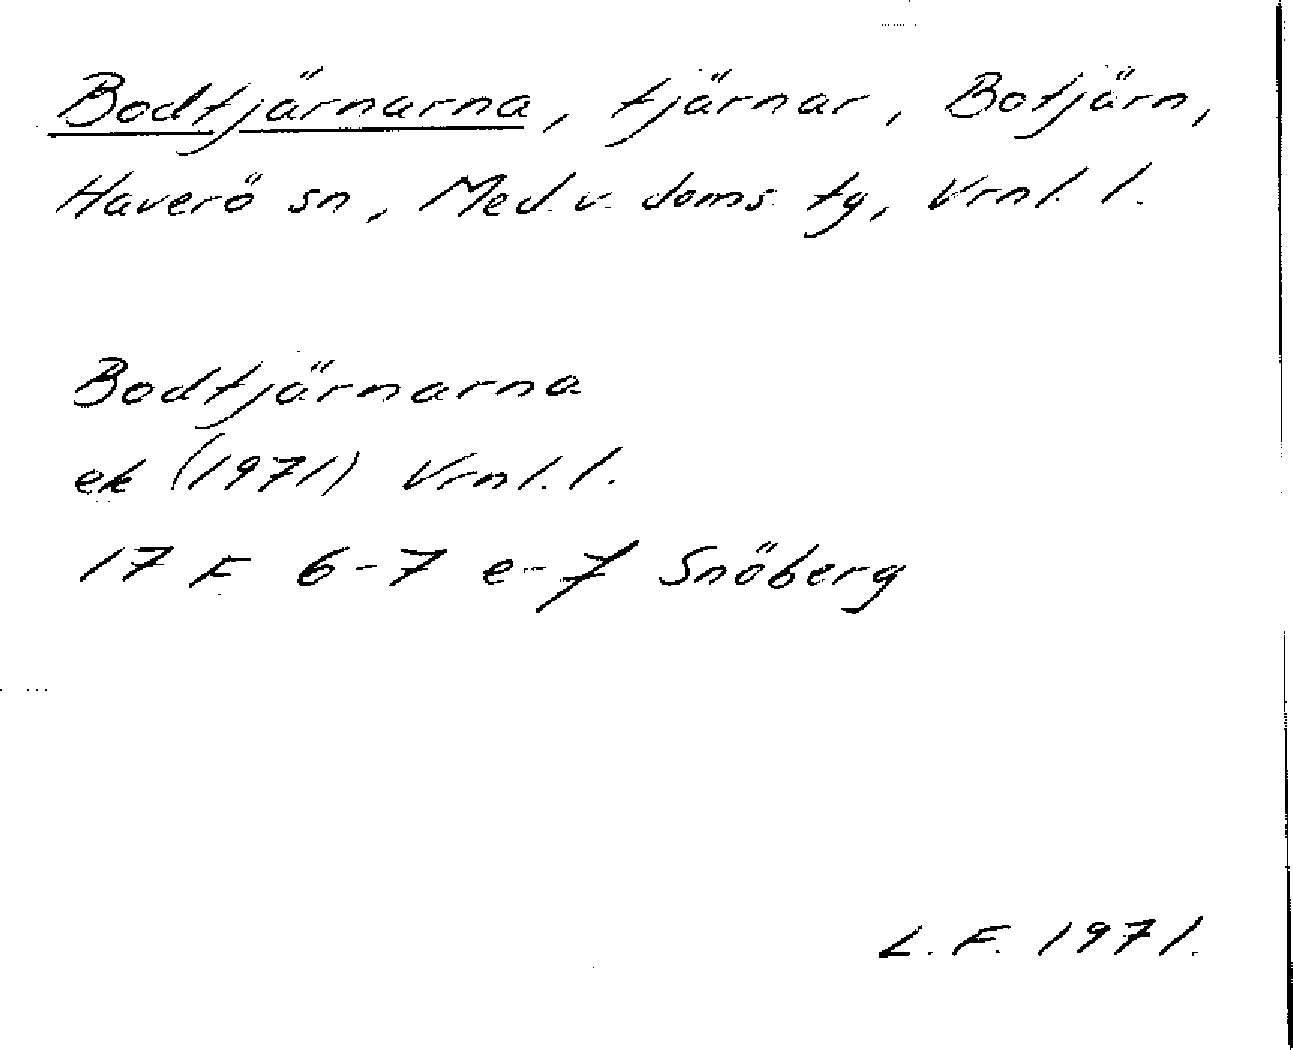 Bodtjärnarna, tjärnar, Botjärn,
Haverö sn, Med. v. doms. tg, Vrnl. l.
Bodtjärnarna
ek (1971) Vrnl. l.
17 F 6-7 e-f Snöberg
L. F. 1971.